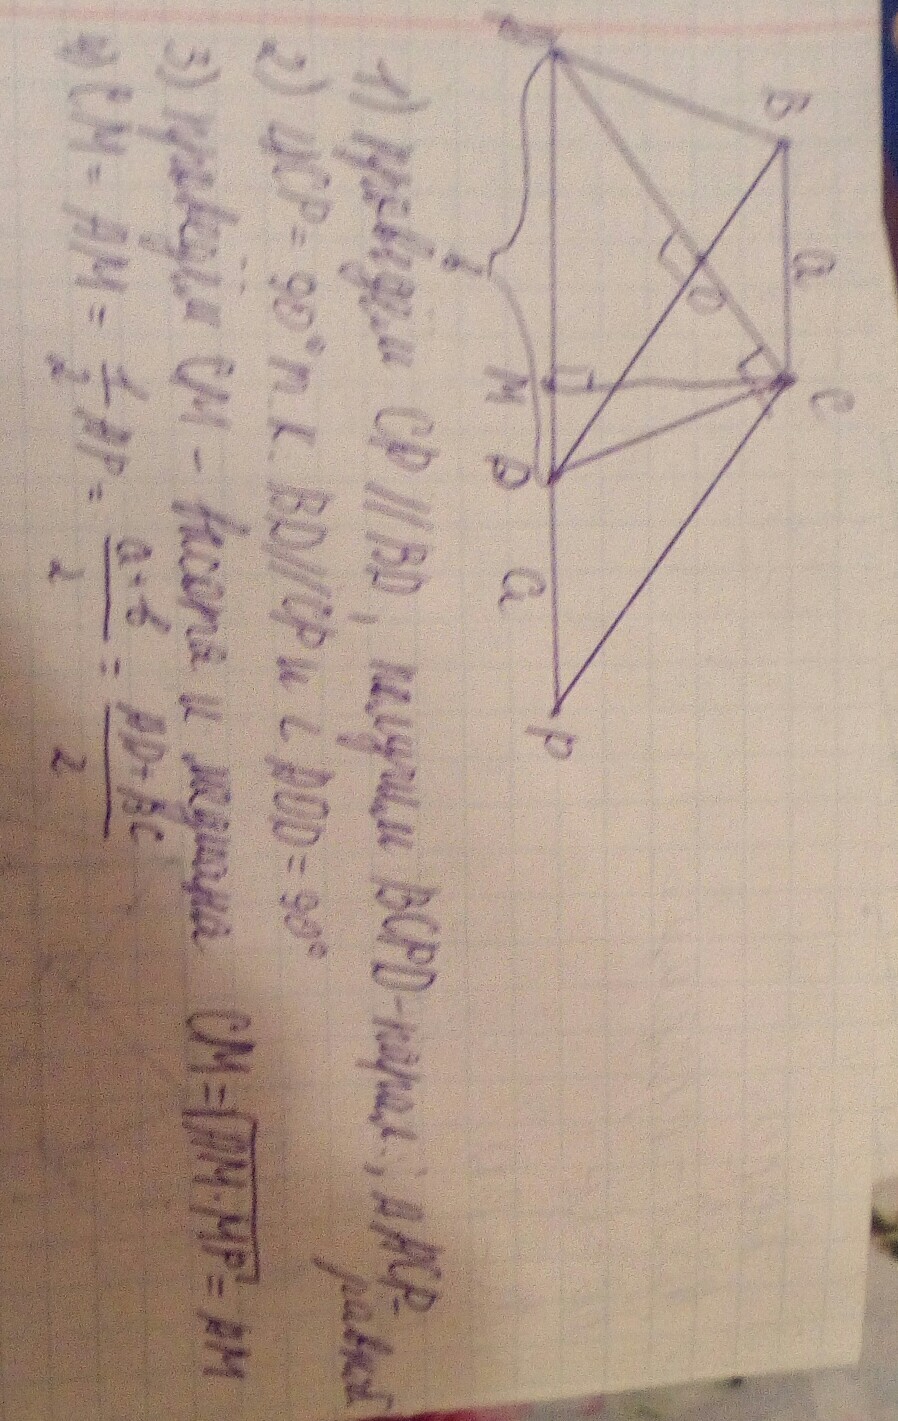 B a C
O
A M D a P
b
1) Проведём CP // BD, получим BCPD - парал.; Δ ACP - равноб
2) ∠ACP = 90° т. к. BD//CP и ∠ AOD = 90°
3) проведём CM - высота и медиана CM = √AM·MP = AM
4) CM = AM = 1/2 AP = a+b/2 = AD+BC/2